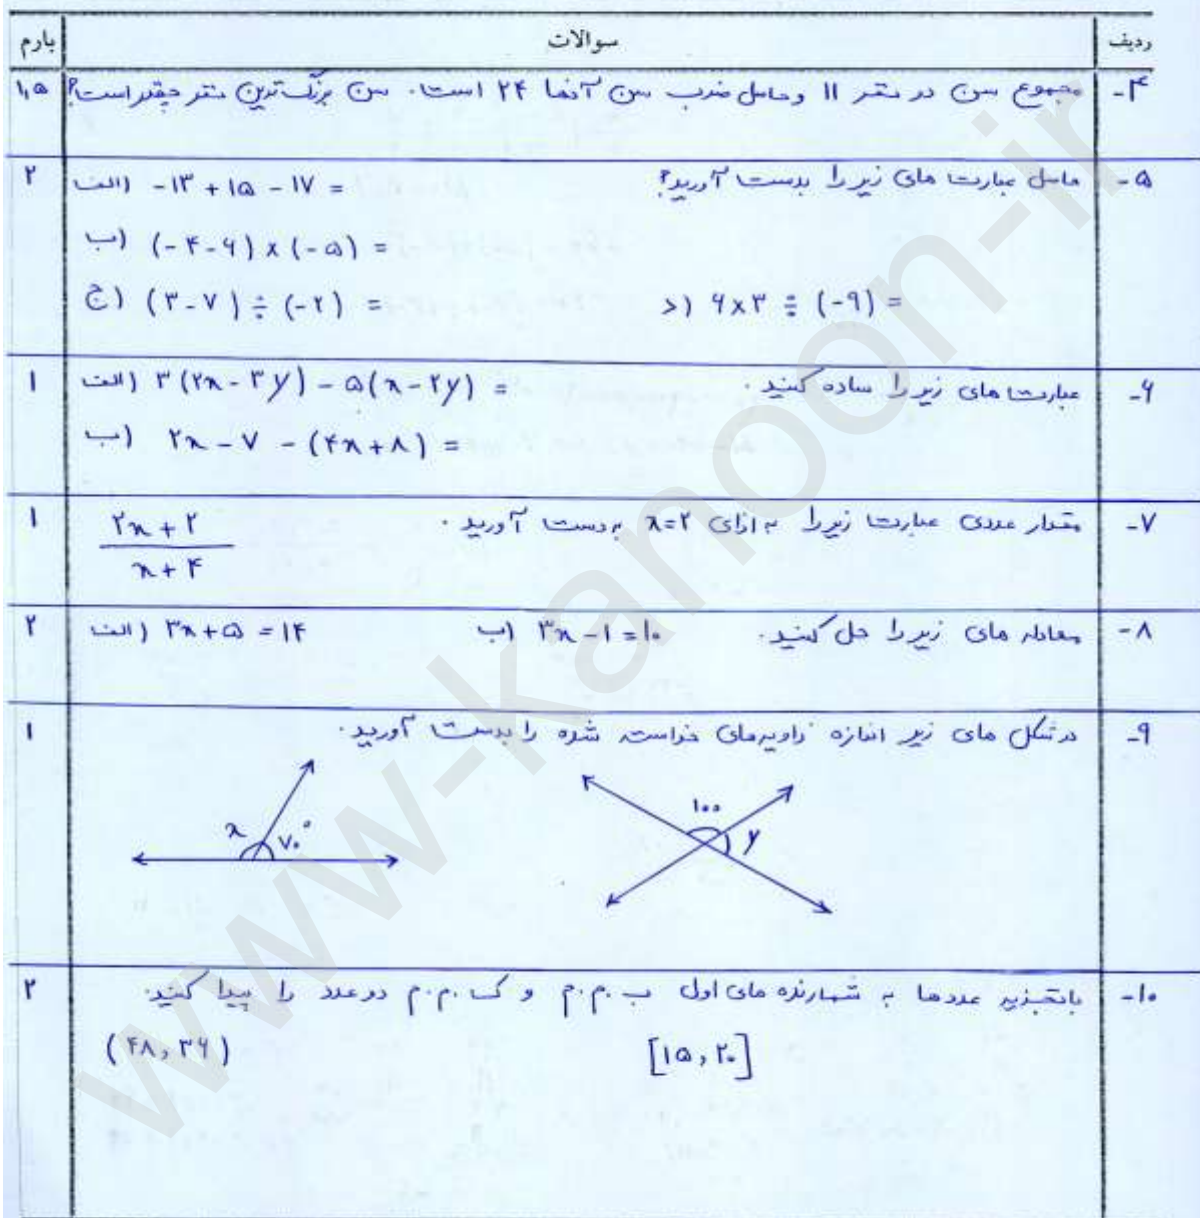 ردیف سوالات بارم
۴- مجموع سن دو نفر ۱۱ و حاصل ضرب سن آنها ۲۴ است. سن بزرگ‌ترین نفر چقدر است؟ ۱,۵
۵- حاصل عبارت های زیر را بدست آورید؟ ۲
الف) -۱۳ + ۱۵ - ۱۷ =
ب) (-۴-۶) × (-۵) =
ج) (۳-۷) ÷ (-۲) = د) ۶×۳ ÷ (-۹) =
۶- عبارت های زیر را ساده کنید. ۱
الف) ۳(۲x - ۳y) - ۵(x - ۲y) =
ب) ۲x - ۷ - (۴x + ۸) =
۷- مقدار عددی عبارت زیر را به ازای x=۲ بدست آورید. ۱
۲x + ۲
x + ۴
۸- معادله های زیر را حل کنید. ب) ۳x - ۱ = ۱۰ الف) ۳x + ۵ = ۱۴ ۲
۹- در شکل های زیر اندازه زاویه‌های خواسته شده را بدست آورید. ۱
x ۷۰° ۱۰۰ y
۱۰- باتجزیه عددها به شمارنده های اول ب.م.م و ک.م.م دو عدد را پیدا کنید. ۲
(۴۸ , ۳۶) [۱۵ , ۲۰]
www-kanoon-ir